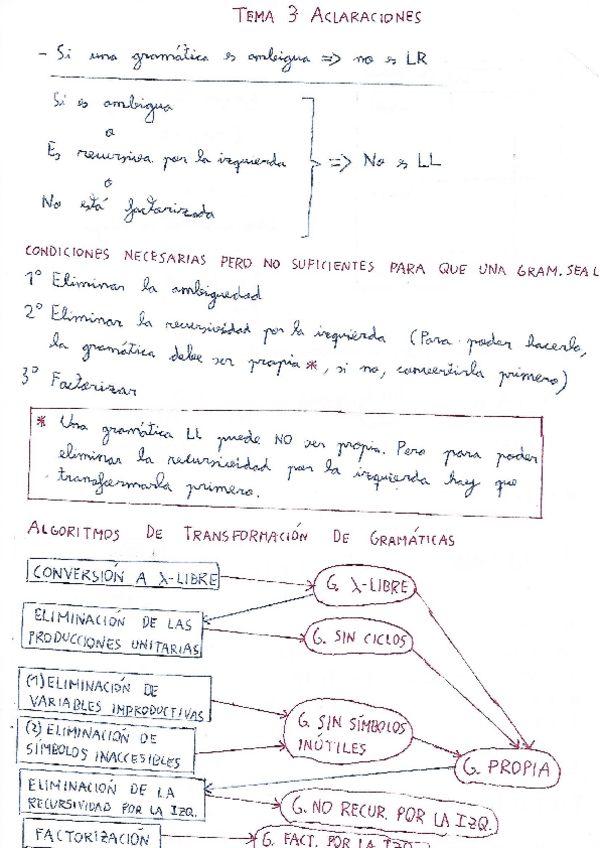 TEMA 3 ACLARACIONES
- Si una gramática es ambigua => no es LR
Si es ambigua
o
Es recursiva por la izquierda => No es LL
o
No está factorizada
CONDICIONES NECESARIAS PERO NO SUFICIENTES PARA QUE UNA GRAM. SEA L
1º Eliminar la ambiguedad
2º Eliminar la recursividad por la izquierda (Para poder hacerlo,
la gramática debe ser propia *, si no, convertirla primero)
3º Factorizar
* Una gramática LL puede NO ser propia. Pero para poder
eliminar la recursividad por la izquierda hay que
transformarla primero.
ALGORITMOS DE TRANSFORMACIÓN DE GRAMÁTICAS
CONVERSIÓN A λ-LIBRE
G. λ-LIBRE
ELIMINACIÓN DE LAS
PRODUCCIONES UNITARIAS
G. SIN CICLOS
(1) ELIMINACIÓN DE
VARIABLES IMPRODUCTIVAS
(2) ELIMINACIÓN DE
SÍMBOLOS INACCESIBLES
G. SIN SÍMBOLOS
INÚTILES
G. PROPIA
ELIMINACIÓN DE LA
RECURSIVIDAD POR LA IZQ.
G. NO RECUR. POR LA IZQ.
FACTORIZACIÓN
G. FACT. POR LA IZQ.